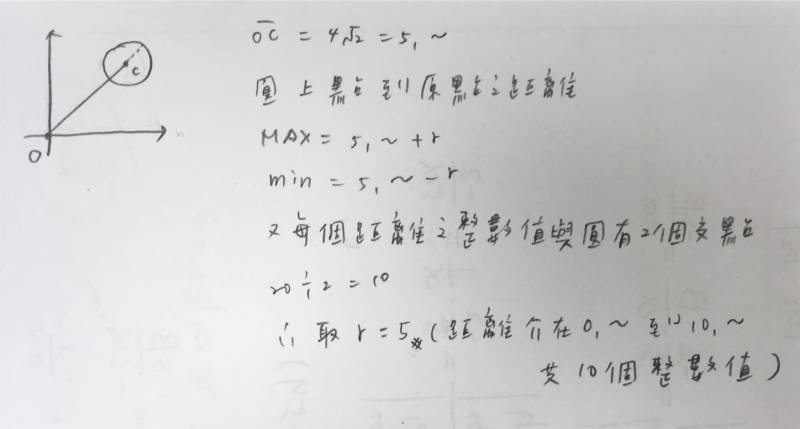 OC = 4√2 = 5.~
圓上點到原點之距離
MAX = 5.~ + r
min = 5.~ - r
又每個距離之整數值與圓有2個交點
20÷2 = 10
∴ 取 r = 5 (距離介在0.~ 到 10.~
共10個整數值)
O
C